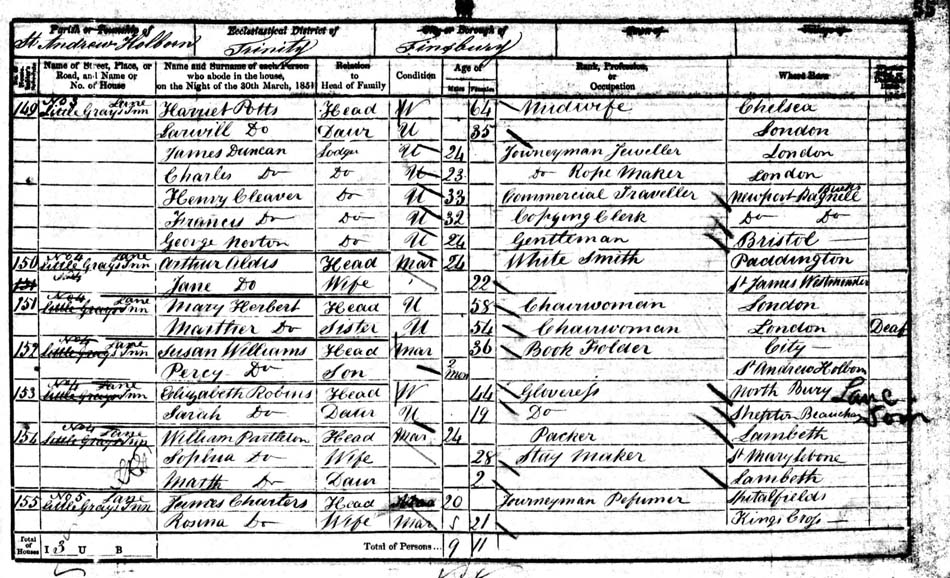 Parish or Township of Ecclesiastical District of City or Borough of Town of Village of
St Andrew Holborn Trinity Finsbury
Name of Street, Place, or Road, and Name or No. of House Name and Surname of each Person who abode in the house, on the Night of the 30th March, 1851 Relation to Head of Family Condition Age of Males Females Rank, Profession, or Occupation Where Born
149 No 3 Little Grays Inn Lane Harriet Potts Head W 64 Midwife Chelsea
Sarwill Do Daur U 35 London
James Duncan Lodger U 24 Journeyman Jeweller London
Charles Do Do U 23 Do Rope Maker London
Henry Cleaver Do U 33 Commercial Traveller Newport Pagnell Bucks
Francis Do Do U 32 Copying Clerk Do Do
George Norton Do U 24 Gentleman Bristol
150 No 4 Little Grays Inn Lane Arthur Aldis Head Mar 24 White Smith Paddington
151 Jane Do Wife 22 St James Westminster
151 No 4 Little Grays Inn Lane Mary Herbert Head U 58 Chairwoman London
Marther Do Sister U 54 Chairwoman London Deaf
152 No 4 Little Grays Inn Lane Susan Williams Head Mar 36 Book Folder City
Percy Do Son 3 mon St Andrew Holborn
153 No 4 Little Grays Inn Lane Elizabeth Robins Head W 44 Gloveress North Bury
Sarah Do Daur U 19 Do Shepton Beauchamp
154 No 4 Little Grays Inn Lane William Partleton Head Mar 24 Packer Lambeth
Sophia Do Wife 28 Stay Maker St Marylebone
Marth Do Daur 2 Lambeth
155 No 5 Little Grays Inn Lane James Charters Head 20 Journeyman Pefumer Spitalfields
Rosina Do Wife Mar 21 Kings Cross
Total of Houses I 3 U B Total of Persons... 9 11